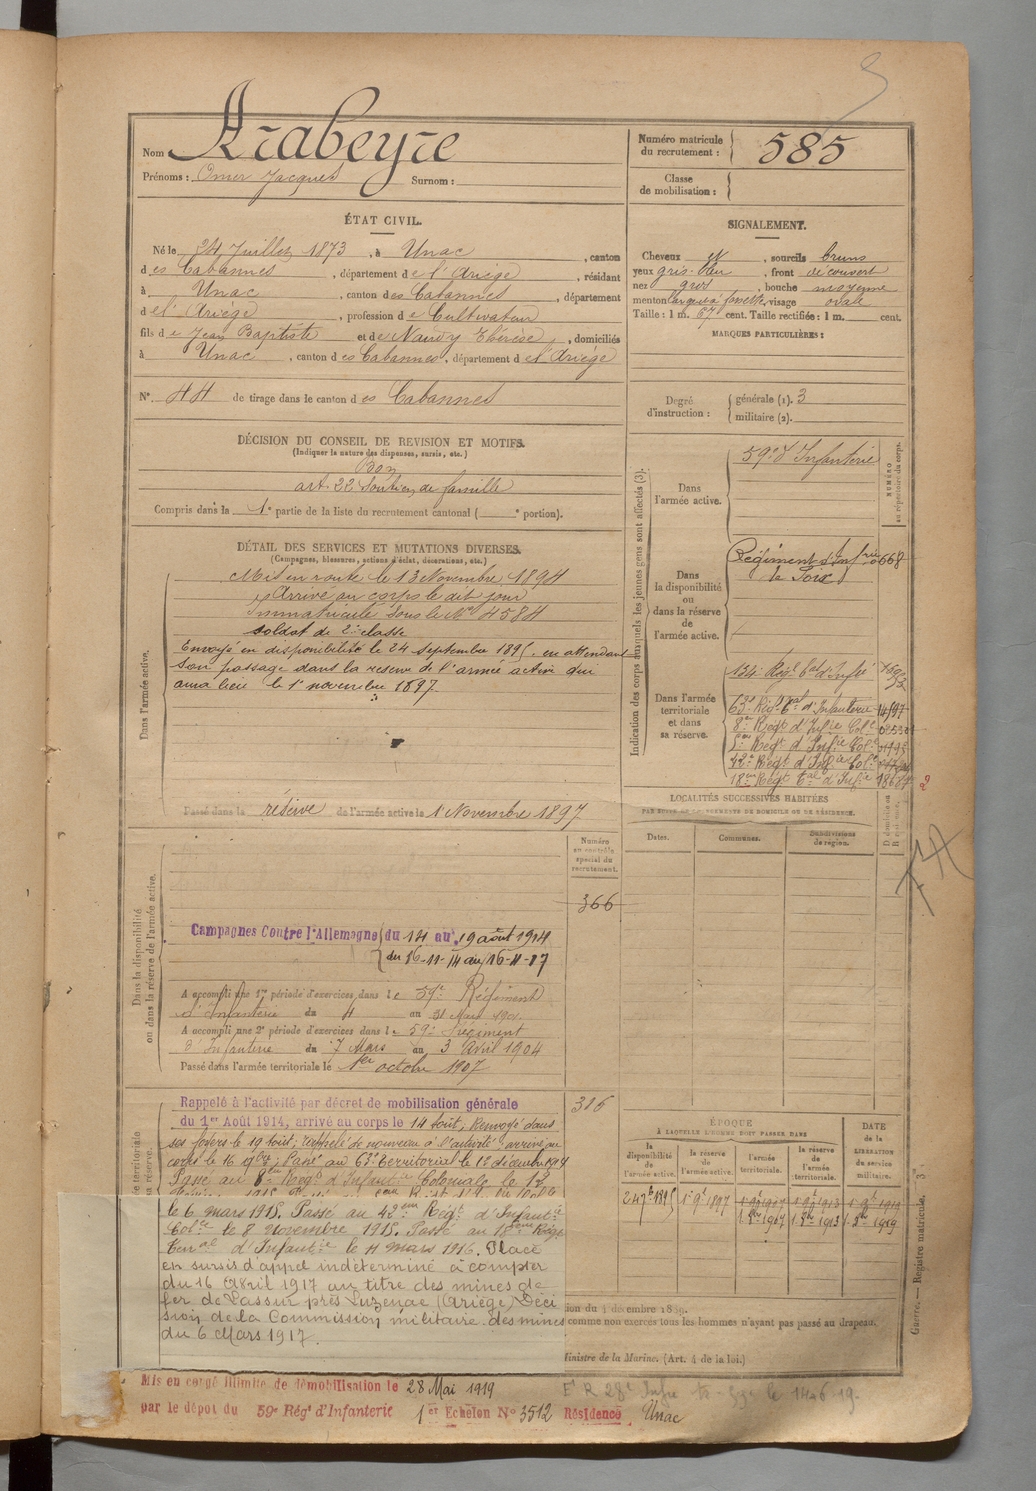 Nom Arabeyre
Prénoms : Omer Jacques Surnom :
Numéro matricule du recrutement : 585
Classe de mobilisation :
ÉTAT CIVIL.
Né le 24 Juillet 1873, à Unac, canton
des Cabannes, département de l'Ariège, résidant
à Unac, canton des Cabannes, département
de l'Ariège, profession de Cultivateur
fils de Jean Baptiste et de Naudy Thérèse, domiciliés
à Unac, canton des Cabannes, département de l'Ariège
N° 44 de tirage dans le canton des Cabannes
SIGNALEMENT.
Cheveux et, sourcils bruns
yeux gris-bleu, front découvert
nez gros, bouche moyenne
menton fossette, visage ovale
Taille : 1 m. 67 cent. Taille rectifiée : 1 m. cent.
MARQUES PARTICULIÈRES :
Degré d'instruction : générale (1). 3
militaire (2).
DÉCISION DU CONSEIL DE REVISION ET MOTIFS.
(Indiquer la nature des dispenses, sursis, etc.)
Bon
art. 22 Soutien de famille
Compris dans la 1e partie de la liste du recrutement cantonal ( e portion).
DÉTAIL DES SERVICES ET MUTATIONS DIVERSES.
(Campagnes, blessures, actions d'éclat, décorations, etc.)
Dans l'armée active.
Mis en route le 13 Novembre 1894
Arrivé au corps le dit jour
Immatriculé sous le No 4584
soldat de 2e classe
Envoyé en disponibilité le 24 septembre 1895, en attendant
son passage dans la reserve de l'armée active qui
aura lieu le 1er novembre 1897.
Passé dans la réserve de l'armée active le 1er Novembre 1897
Indication des corps auxquels les jeunes gens sont affectés (3).
NUMÉRO au répertoire du corps.
Dans l'armée active.
59e d'Infanterie
Dans la disponibilité ou dans la réserve de l'armée active.
Régiment d'Infrie 0668
de Foix
Dans l'armée territoriale et dans sa réserve.
134e Regt tal d'Infie
63e Régt tal d'Infanterie
8e Régt d'Infie Colle
5e Régt d'Infie Colle
42e Régt d'Infie Colle
18me Régt tal d'Infie
2
LOCALITÉS SUCCESSIVES HABITÉES
PAR SUITE DE CHANGEMENTS DE DOMICILE OU DE RÉSIDENCE.
Dates. Communes. Subdivisions de région.
Dans la disponibilité ou dans la réserve de l'armée active.
Numéro au contrôle spécial du recrutement.
366
Campagnes Contre l'Allemagne du 14 au 19 août 1914
du 16-11-14 au 16-4-17
A accompli une 1re période d'exercices dans le 59e Régiment
d'Infanterie du 4 au 31 Mars 1901.
A accompli une 2e période d'exercices dans le 59e Régiment
d'Infanterie du 7 Mars au 3 Avril 1904
Passé dans l'armée territoriale le 1er octobre 1907
Rappelé à l'activité par décret de mobilisation générale
du 1er Août 1914, arrivé au corps le 14 aout, Renvoyé dans
ses foyers le 19 aout, rappelé de nouveau à l'activité, arrivé au
corps le 16 9bre, Passé au 63e territorial le 1er décembre 1914
Passé au 8me Regt d'Infantie Coloniale le 12
le 6 mars 1915. Passé au 42eme Régt d'Infantie
Colle le 8 novembre 1915. Passé au 18eme Régt
Terral d'Infantie le 11 mars 1916. Placé
en sursis d'appel indéterminé à compter
du 16 Avril 1917 au titre des mines de
fer de Lassur près Luzenac (Ariège) Déci
sion de la Commission militaire des mines
du 6 Mars 1917.
ÉPOQUE
À LAQUELLE L'HOMME DOIT PASSER DANS
la disponibilité de l'armée active.
la réserve de l'armée active.
l'armée territoriale.
la réserve de l'armée territoriale.
DATE de la LIBÉRATION du service militaire.
24 7bre 1895 1er 9bre 1897 1er 9bre 1907 1er 9bre 1913 1er 9bre 1919
1er 8bre 1907 1er 8bre 1913 1er 8bre 1919
comme non exercés tous les hommes n'ayant pas passé au drapeau.
Ministre de la Marine. (Art. 4 de la loi.)
Guerre. — Registre matricule.
Mis en congé illimité de démobilisation le 28 Mai 1919
par le dépôt du 59e Régt d'Infanterie 1er Echelon No 3512 Résidence Unac